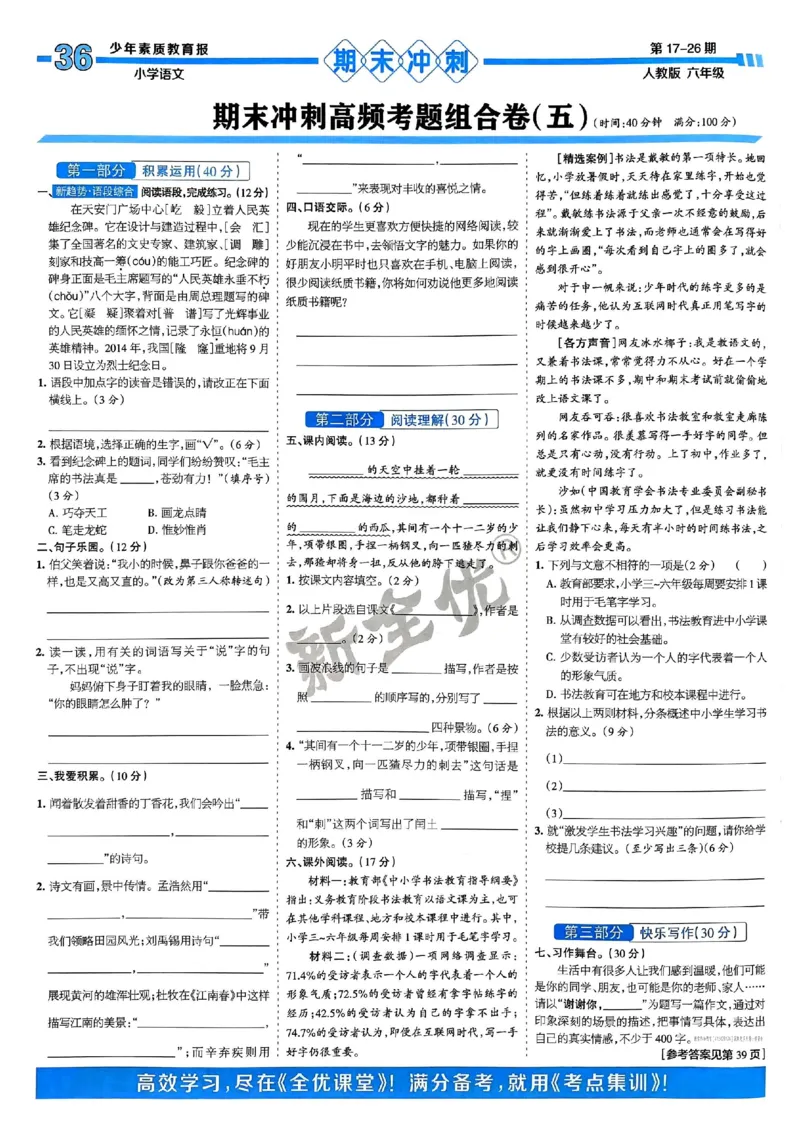 36 少年素质教育报
小学语文
期末冲刺
第17-26期
人教版 六年级
期末冲刺高频考题组合卷(五)(时间:40分钟 满分:100分)
第一部分 积累运用(40分)
一、新趋势·语段综合 阅读语段,完成练习。(12分)
在天安门广场中心[屹 毅]立着人民英
雄纪念碑。它在设计与建造过程中,[会 汇]
集了全国著名的文史专家、建筑家、[调 雕]
刻家和技高一筹(cóu)的能工巧匠。纪念碑的
碑身正面是毛主席题写的“人民英雄永垂不朽
(chǒu)”八个大字,背面是由周总理题写的碑
文。它[凝 疑]聚着对[普 谱]写了光辉事业
的人民英雄的缅怀之情,记录了永恒(huán)的
英雄精神。2014年,我国[隆 窿]重地将9月
30日设立为烈士纪念日。
1. 语段中加点字的读音是错误的,请改正在下面
横线上。(3分)
2. 根据语境,选择正确的生字,画“√”。(6分)
3. 看到纪念碑上的题词,同学们纷纷赞叹:“毛主
席的书法真是____,苍劲有力!”(填序号)
(3分)
A. 巧夺天工 B. 画龙点睛
C. 笔走龙蛇 D. 惟妙惟肖
二、句子乐园。(12分)
1. 伯父笑着说:“我小的时候,鼻子跟你爸爸的一
样,也是又高又直的。”(改为第三人称转述句)
2. 读一读,用有关的词语写关于“说”字的句
子,不出现“说”字。
妈妈俯下身子盯着我的眼睛,一脸焦急:
“你的眼睛怎么肿了?”
三、我爱积累。(10分)
1. 闻着散发着甜香的丁香花,我们会吟出“____
____,____
____”的诗句。
2. 诗文有画,景中传情。孟浩然用“____
____,____”带
我们领略田园风光;刘禹锡用诗句“____
____,____”
展现黄河的雄浑壮观;杜牧在《江南春》中这样
描写江南的美景:“____,
____”;而辛弃疾则用
“____,
____”来表现对丰收的喜悦之情。
四、口语交际。(6分)
现在的学生更喜欢方便快捷的网络阅读,较
少能沉浸在书中,去领悟文字的魅力。如果你的
好朋友小明平时也只喜欢在手机、电脑上阅读,
很少阅读纸质书籍,你将如何劝说他更多地阅读
纸质书籍呢?
第二部分 阅读理解(30分)
五、课内阅读。(13分)
____的天空中挂着一轮____
的圆月,下面是海边的沙地,都种着____
的____的西瓜,其间有一个十一二岁的少
年,项带银圈,手捏一柄钢叉,向一匹猹尽力的刺
去,那猹却将身一扭,反从他的胯下逃走了。
1. 按课文内容填空。(2分)
2. 以上片段选自课文《____》,作者是
____。(2分)
3. 画波浪线的句子是____描写,作者是按
照____的顺序写的,分别写了____
____四种景物。(6分)
4. “其间有一个十一二岁的少年,项带银圈,手捏
一柄钢叉,向一匹猹尽力的刺去”这句话是
____描写和____描写,“捏”
和“刺”这两个词写出了闰土____
的形象。(3分)
六、课外阅读。(17分)
材料一:教育部《中小学书法教育指导纲要》
指出:义务教育阶段书法教育以语文课为主,也可
在其他学科课程、地方和校本课程中进行。其中,
小学三~六年级每周安排1课时用于毛笔字学习。
材料二:(调查数据)一项网络调查显示:
71.4%的受访者表示一个人的字代表着一个人的
形象气质;72.5%的受访者曾经有拿字帖练字的
经历;42.5%的受访者认为自己的字拿不出手;
74.7%的受访者认为,即便在互联网时代,写一手
好字仍很重要。
[精选案例]书法是戴敏的第一项特长。她回
忆,小学放暑假时,天天待在家里练字,开始也觉
得苦,“但练着练着就练出感觉了,十分享受这过
程”。戴敏练书法源于父亲一次不经意的鼓励,后
来就渐渐爱上了书法,而老师也通常会在写得好
的字上画圈,“每次看到自己字上的圈多了,就会
感到很开心”。
对于申一帆来说:少年时代的练字更多的是
痛苦的任务,他认为互联网时代真正用笔写字的
时候越来越少了。
[各方声音]网友冰水椰子:我是教语文的,
又兼着书法课,常常觉得力不从心。好在一个学
期上的书法课不多,期中和期末考试前就偷偷地
改上语文课了。
网友吞可吞:很喜欢书法教室和教室走廊陈
列的名家作品。很羡慕写得一手好字的同学。但
总是只有心动,没有行动。上了初中,作业多了,
就更没有时间练字了。
沙如(中国教育学会书法专业委员会副秘书
长):虽然初中学习压力加大了,但是练习书法能
让我们静下心来,每天有半小时的时间练书法,之
后学习效率会更高。
1. 下列与文意不相符的一项是(2分) ( )
A. 教育部要求,小学三~六年级每周要安排1课
时用于毛笔字学习。
B. 从调查数据可以看出,书法教育进中小学课
堂有较好的社会基础。
C. 少数受访者认为一个人的字代表着一个人
的形象气质。
D. 书法教育可在地方和校本课程中进行。
2. 根据以上两则材料,分条概述中小学生学习书
法的意义。(9分)
(1)____
(2)____
(3)____
3. 就“激发学生书法学习兴趣”的问题,请你给学
校提几条建议。(至少写出三条)(6分)
第三部分 快乐写作(30分)
七、习作舞台。(30分)
生活中有很多人让我们感到温暖,他们可能
是你的同学、朋友,也可能是你的老师、家人……
请以“谢谢你,____”为题写一篇作文,通过对
印象深刻的场景的描述,把事情写具体,表达出
自己的真实情感,不少于400字。
[参考答案见第39页]
新全优®
高效学习,尽在《全优课堂》! 满分备考,就用《考点集训》!